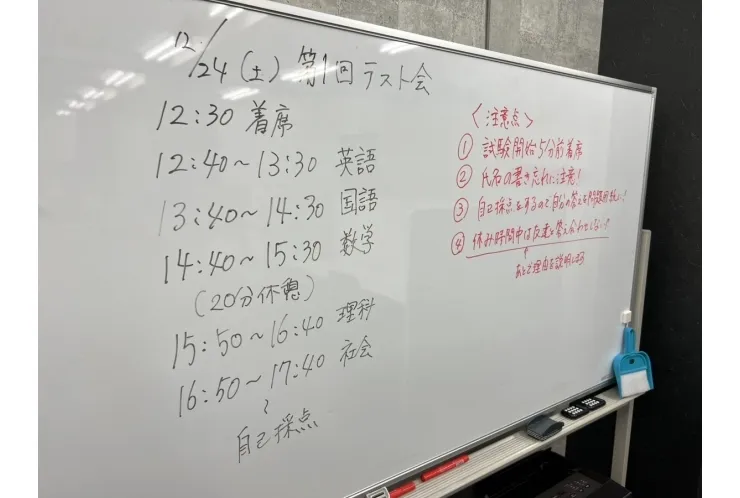 12/24(土) 第1回テスト会
12:30 着席
12:40～13:30 英語
13:40～14:30 国語
14:40～15:30 数学
(20分休憩)
15:50～16:40 理科
16:50～17:40 社会
～
自己採点
〈注意点〉
① 試験開始5分前着席
② 氏名の書き忘れに注意!
③ 自己採点をするので自分の答えを問題用紙に!
④ 休み時間中は友達と答え合わせしない!
↑
あとで理由を説明します